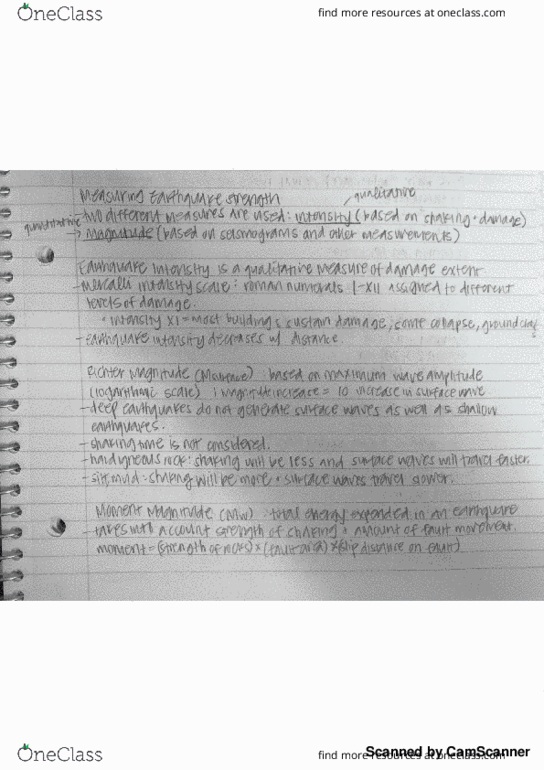 OneClass
find more resources at oneclass.com
Measuring Earthquake strength
qualitative
- two different measures are used: intensity (based on shaking + damage)
quantitative
→ magnitude (based on seismograms and other measurements)
Earthquake intensity is a qualitative measure of damage extent
- Mercalli intensity scale: roman numerals I-XII assigned to different
levels of damage.
• intensity XI = most buildings sustain damage, some collapse, ground
- Earthquake intensity decreases w/ distance.
Richter Magnitude (Msurface): based on maximum wave amplitude
(logarithmic scale) 1 magnitude increase = 10 increase in surface wave
- deep earthquakes do not generate surface waves as well as shallow
earthquakes.
- shaking time is not considered.
- hard igneous rock: shaking will be less and surface waves will travel faster.
- silt, mud: shaking will be more + surface waves travel slower.
Moment Magnitude (Mw): total energy expended in an earthquake
- takes into account strength of shaking + amount of fault movement.
moment = (strength of rocks) × (fault area) × (slip distance on fault)
OneClass
find more resources at oneclass.com
Scanned by CamScanner